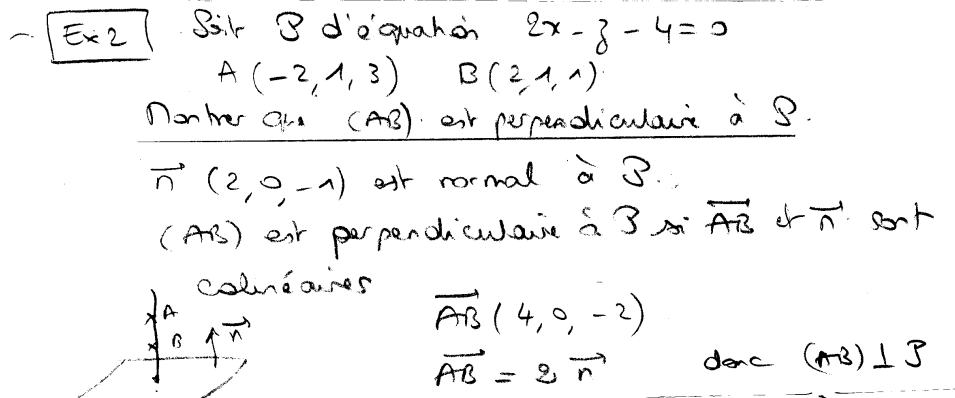 Ex 2 Soit P d'équation 2x - z - 4 = 0
A (-2, 1, 3) B (2, 1, 1)
Montrer que (AB) est perpendiculaire à P.
n⃗ (2, 0, -1) est normal à P.
(AB) est perpendiculaire à P si AB⃗ et n⃗ sont
colinéaires
A
B n⃗
AB⃗ (4, 0, -2)
AB⃗ = 2 n⃗ donc (AB) ⊥ P